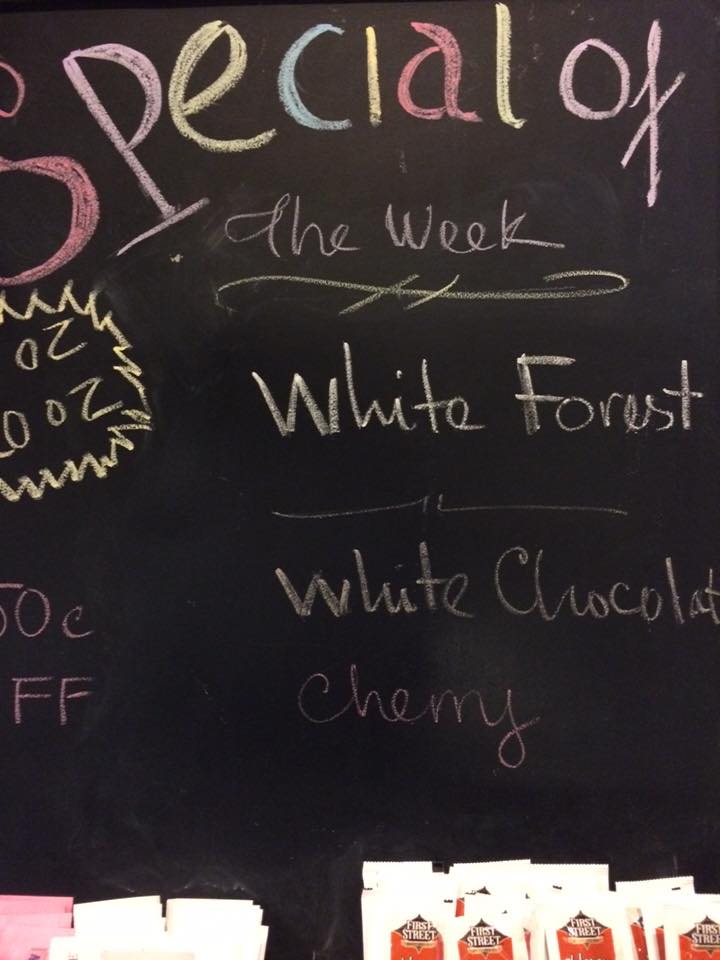 Special of
The Week
White Forest
White Chocolat
Cherry
oz
20 oz
50¢
FF
FIRST STREET
FIRST STREET
FIRST STREET
FIRST STREE